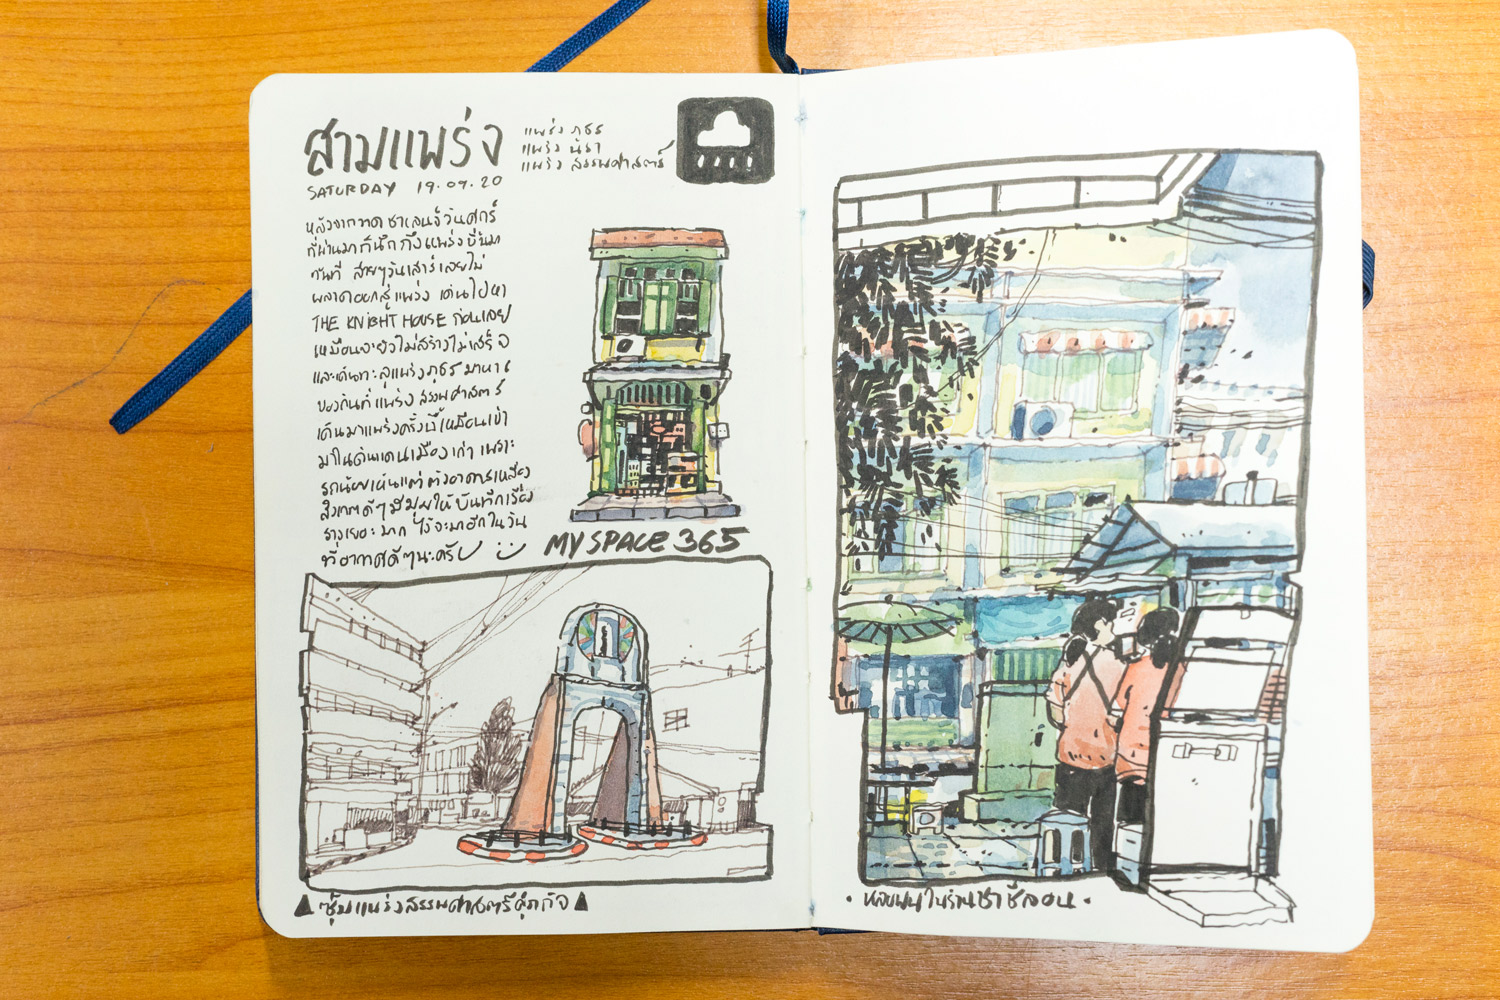 สามแพร่ง
แพร่ง ภูธร
แพร่ง นรา
แพร่ง สรรพศาสตร์
SATURDAY 19.09.20
หลังจากวาด ชาเลนจ์วันศุกร์
ที่ผ่านมาก็นึกถึงแพร่งนี้ขึ้นมา
ทันที สายๆวันเสาร์เลยไม่
พลาดออกสู่แพร่ง เดินไปหา
THE KNIGHT HOUSE ก่อนเลย
เหมือนจะยังไม่สร้างไม่เสร็จ
และเดินทะลุแพร่งภูธร มาหา
ของกินที่แพร่ง สรรพศาสตร์
เดินมาแพร่งครั้งนี้เหมือนเข้า
มาในดินแดนเมืองเก่า เพราะ
รถน้อยเห็นแต่ตัวอาคารเหลือง
สังเกตดีๆ มีมุมให้บันทึกเรื่อง
ราวเยอะมาก ไว้จะมาอีกในวัน
ที่อากาศดีๆนะครับ
MY SPACE 365
ซุ้มแพร่งสรรพศาสตร์ศุภกิจ
หลบฝนในร้านชาซีลอน